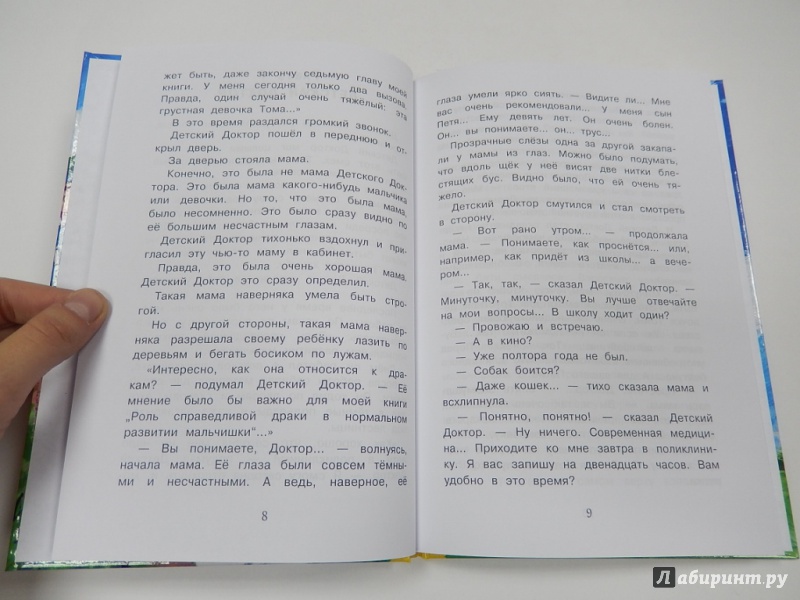 жет быть, даже закончу седьмую главу моей
книги. У меня сегодня только два вызова.
Правда, один случай очень тяжёлый: эта
грустная девочка Тома...»
В это время раздался громкий звонок.
Детский Доктор пошёл в переднюю и от-
крыл дверь.
За дверью стояла мама.
Конечно, это была не мама Детского Док-
тора. Это была мама какого-нибудь мальчика
или девочки. Но то, что это была мама,
было несомненно. Это было сразу видно по
её большим несчастным глазам.
Детский Доктор тихонько вздохнул и при-
гласил эту чью-то маму в кабинет.
Правда, это была очень хорошая мама.
Детский Доктор это сразу определил.
Такая мама наверняка умела быть стро-
гой.
Но с другой стороны, такая мама навер-
няка разрешала своему ребёнку лазить по
деревьям и бегать босиком по лужам.
«Интересно, как она относится к дра-
кам? — подумал Детский Доктор. — Её
мнение было бы важно для моей книги
„Роль справедливой драки в нормальном
развитии мальчишки“...»
— Вы понимаете, Доктор... — волнуясь,
начала мама. Её глаза были совсем тёмными
и несчастными. А ведь, наверное, её
8
глаза умели ярко сиять. — Видите ли... Мне
вас очень рекомендовали... У меня сын
Петя... Ему девять лет. Он очень болен.
Он... вы понимаете... он... трус...
Прозрачные слёзы одна за другой закапа-
ли у мамы из глаз. Можно было подумать,
что вдоль щёк у неё висят две нитки бле-
стящих бус. Видно было, что ей очень тя-
жело.
Детский Доктор смутился и стал смотреть
в сторону.
— Вот рано утром... — продолжала
мама. — Понимаете, как проснётся... или,
например, как придёт из школы... а вече-
ром...
— Так, так, — сказал Детский Доктор. —
Минуточку, минуточку. Вы лучше отвечайте
на мои вопросы... В школу ходит один?
— Провожаю и встречаю.
— А в кино?
— Уже полтора года не был.
— Собак боится?
— Даже кошек... — тихо сказала мама и
всхлипнула.
— Понятно, понятно! — сказал Детский
Доктор. — Ну ничего. Современная медици-
на... Приходите ко мне завтра в поликлини-
ку. Я вас запишу на двенадцать часов. Вам
удобно в это время?
9
Лабиринт.ру